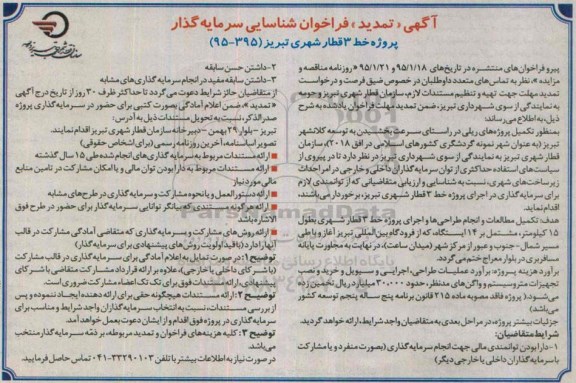 آگهی «تمدید» فراخوان شناسایی سرمایه‌گذار
پروژه خط ۳ قطار شهری تبریز (۳۹۵-۹۵)
پیرو فراخوان‌های منتشره در تاریخ‌های ۹۵/۱/۱۸ و ۹۵/۱/۲۱ «روزنامه مناقصه و
مزایده»، نظر به تماس‌های متعدد داوطلبان در خصوص ضیق فرصت و درخواست
تمدید مهلت جهت تهیه و تنظیم مستندات لازم، سازمان قطار شهری تبریز و حومه
به نمایندگی از سوی شهرداری تبریز، ضمن تمدید مهلت فراخوان یادشده به شرح
ذیل، به اطلاع می‌رساند:
بمنظور تکمیل پروژه‌های ریلی در راستای سرعت بخشیدن به توسعه کلانشهر
تبریز (به عنوان شهر نمونه گردشگری کشورهای اسلامی در افق ۲۰۱۸)، سازمان
قطار شهری تبریز به نمایندگی از سوی شهرداری تبریز در نظر دارد تا در پیروی از
سیاست‌های استفاده حداکثری از توان سرمایه‌گذاران داخلی و خارجی در امر احداث
زیرساخت‌های شهری، نسبت به شناسایی و ارزیابی متقاضیانی که از توانمندی لازم
برای سرمایه‌گذاری در اجرای پروژه خط ۳ قطار شهری تبریز، برخوردار می‌باشند،
اقدام نماید.
هدف تکمیل مطالعات و انجام طراحی‌ها و اجرای پروژه خط ۳ قطار شهری بطول
۱۵ کیلومتر، مشتمل بر ۱۴ ایستگاه، که از فرودگاه بین‌المللی تبریز آغاز و با طی
مسیر شمال - جنوب و عبور از مرکز شهر (میدان ساعت)، در نهایت به مجاورت پایانه
مسافربری در بلوار معراج ختم می‌گردد.
برآورد هزینه پروژه: برآورد عملیات طراحی، اجرایی و سیویل و خرید و نصب
تجهیزات متروسیستم و واگن‌های مدنظر، حدود ۳۰،۰۰۰ میلیارد ریال تخمین زده
می‌شود. (پروژه فاقد مصوبه ماده ۲۱۵ قانون برنامه پنج ساله پنجم توسعه کشور
می‌باشد)
جزئیات بیشتر پروژه، در مراحل بعدی به متقاضیان واجد شرایط، ارائه خواهد گردید.
شرایط متقاضیان:
۱- دارا بودن توانمندی مالی جهت انجام سرمایه‌گذاری (بصورت منفرد و یا مشارکت
با سرمایه‌گذاران داخلی یا خارجی دیگر)
۲- داشتن حسن سابقه
۳- داشتن سابقه مفید در انجام سرمایه‌گذاری‌های مشابه
از متقاضیان حائز شرایط دعوت می‌گردد تا حداکثر ظرف ۳۰ روز از تاریخ درج آگهی
«تمدید»، ضمن اعلام آمادگی بصورت کتبی برای حضور در سرمایه‌گذاری پروژه
صدرالذکر، نسبت به تحویل مستندات ذیل به آدرس:
تبریز - بلوار ۲۹ بهمن - دبیرخانه سازمان قطار شهری تبریز اقدام نمایند.
تصویر اساسنامه، آخرین روزنامه رسمی (برای اشخاص حقوقی)
ارائه مستندات مربوط به سرمایه‌گذاری‌های انجام شده طی ۱۵ سال گذشته
ارائه مستندات مربوط به دارا بودن توان مالی و یا امکان مشارکت در تامین منابع
مالی مورد نیاز
ارائه دستورالعمل و یا نحوه مشارکت و سرمایه‌گذاری در طرح‌های مشابه
ارائه هرگونه مستندی که بیانگر توانایی سرمایه‌گذار برای حضور در طرح فوق
الاشاره باشد
ارائه روش‌های مشارکت و سرمایه‌گذاری که متقاضی آمادگی مشارکت در قالب
آنها را دارد (با قید اولویت روش‌های پیشنهادی برای سرمایه‌گذار)
توضیح ۱: در صورت تمایل به اعلام آمادگی برای سرمایه‌گذاری در قالب مشارکت
(با شرکای داخلی یا خارجی)، علاوه بر ارائه قرارداد مشارکت متقاضی با شرکای
پیشنهادی، ارائه مستندات فوق برای تک تک اعضاء مشارکت ضروری است.
توضیح ۲: ارائه مستندات هیچگونه حقی برای ارائه دهنده ایجاد ننموده و پس
از بررسی مستندات، نسبت به انتخاب سرمایه‌گذاران واجد شرایط و مناسب برای
سرمایه‌گذاری در پروژه فوق اقدام و از ایشان دعوت بعمل خواهد آمد.
توضیح ۳: کلیه هزینه‌های فراخوان و تمدید مربوطه، بر ذمّه سرمایه‌گذار منتخب
می‌باشد.
در صورت نیاز به اطلاعات بیشتر با تلفن ۳۳۲۹۰۱۰۳-۰۴۱ تماس حاصل فرمایید.